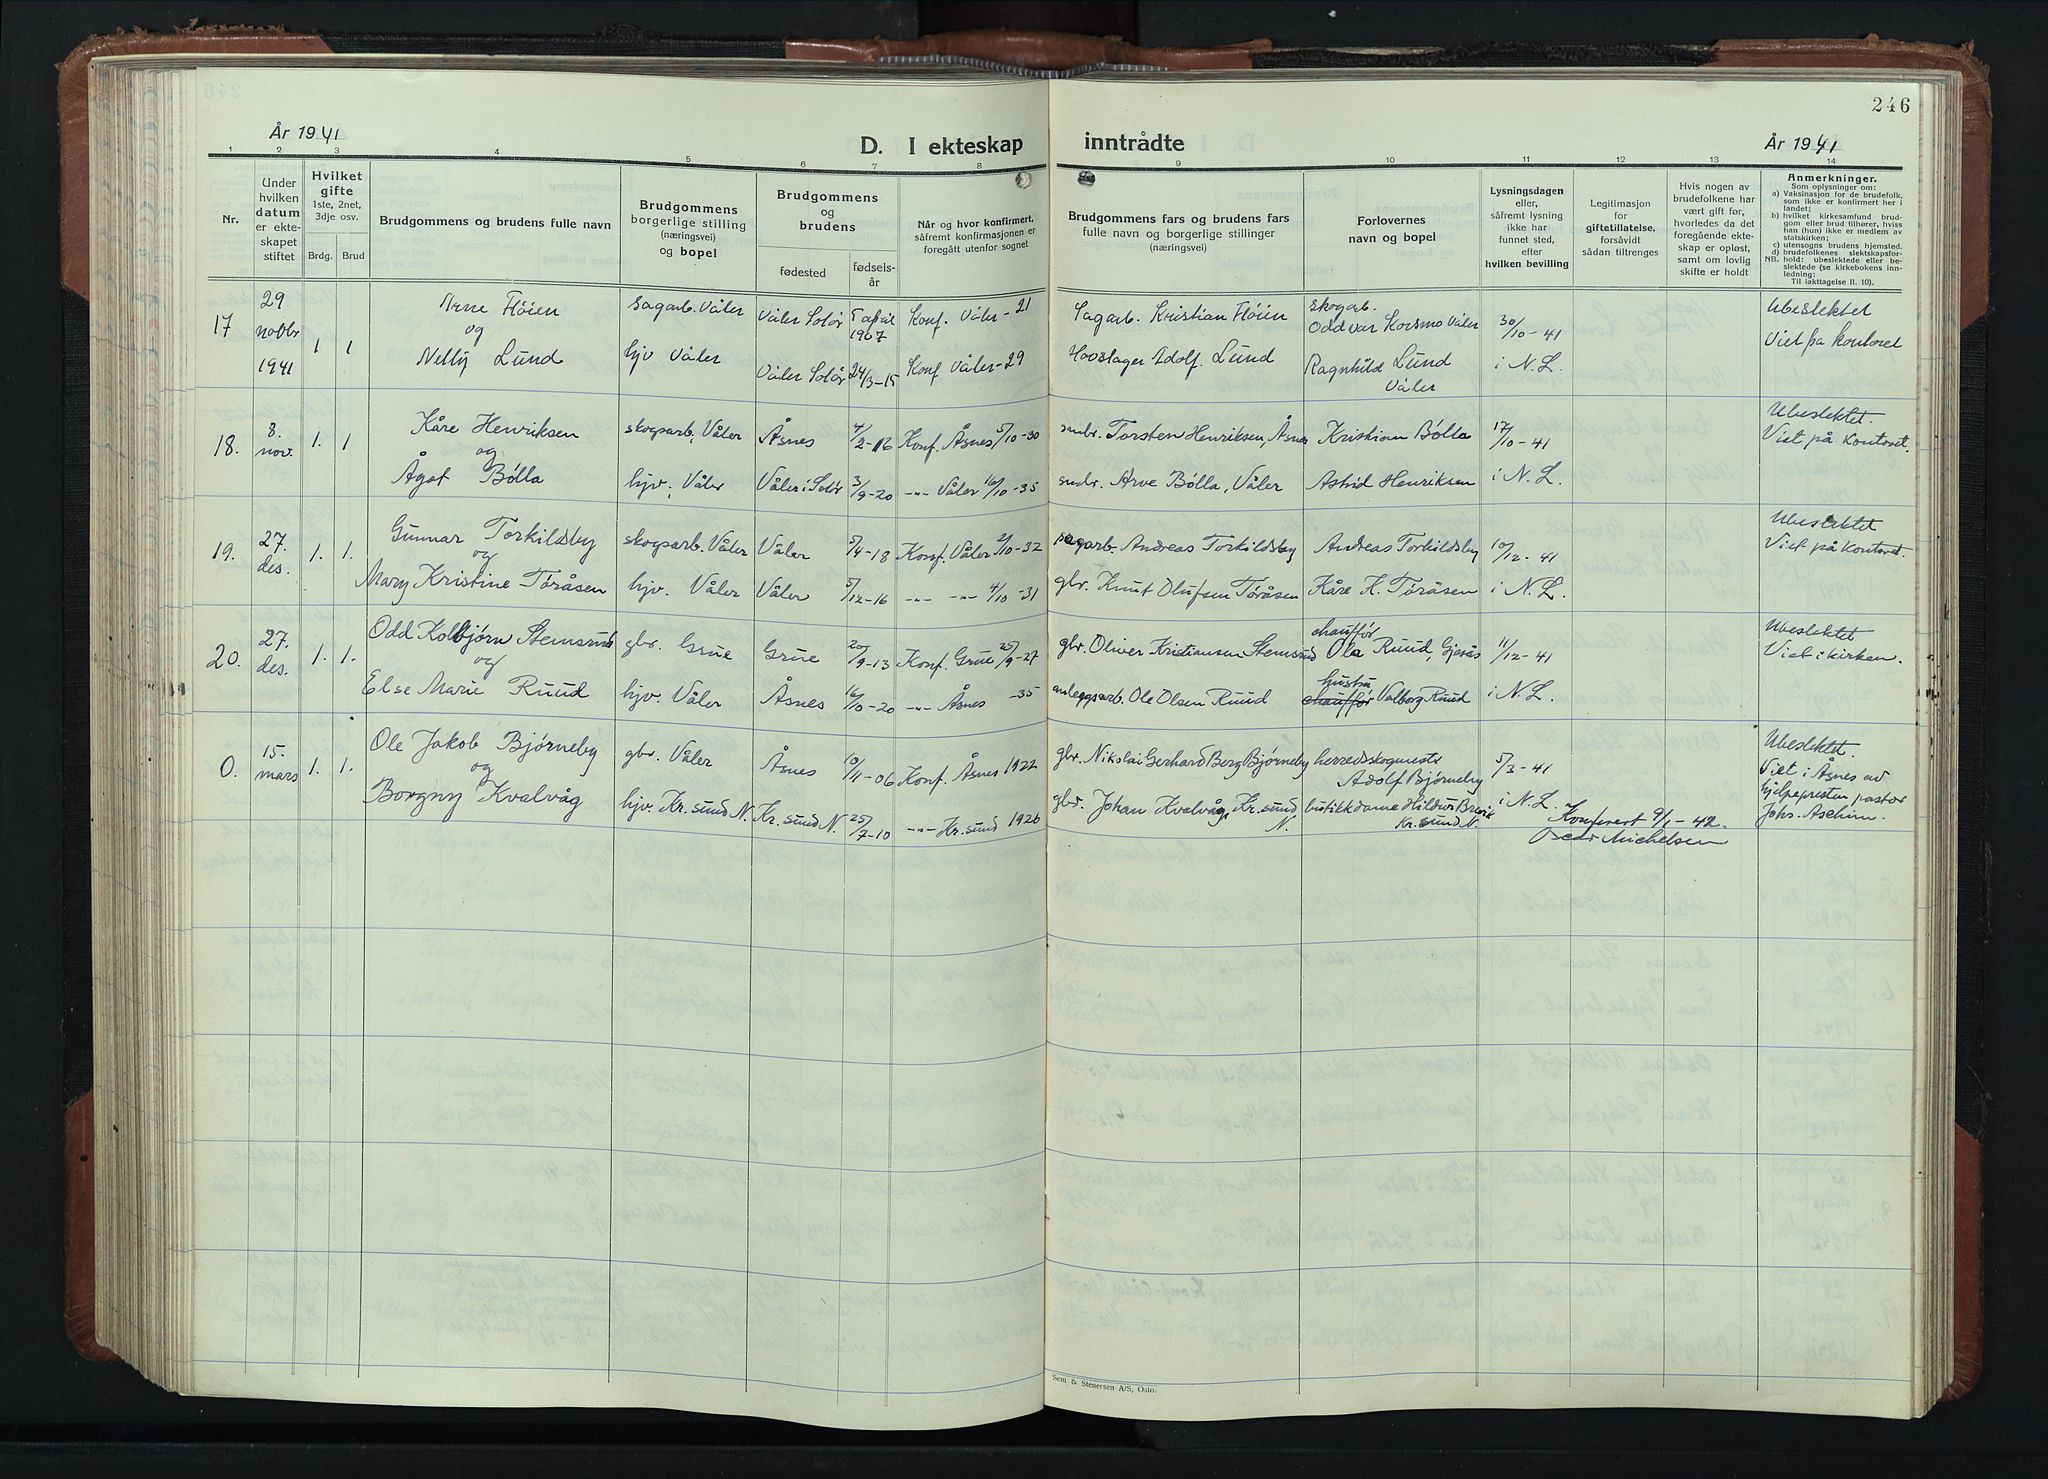 246
År 1941
D. I ekteskap inntrådte
År 1941
1 2 3 4 5 6 7 8 9 10 11 12 13 14
Nr.
Under hvilken datum er ekte- skapet stiftet
Hvilket gifte
1ste, 2net, 3dje osv.
Brdg. Brud
Brudgommens og brudens fulle navn
Brudgommens borgerlige stilling (næringsvei) og bopel
Brudgommens og brudens
fødested
fødsels- år
Når og hvor konfirmert, såfremt konfirmasjonen er foregått utenfor sognet
Brudgommens fars og brudens fars fulle navn og borgerlige stillinger (næringsvei)
Forlovernes navn og bopel
Lysningsdagen eller, såfremt lysning ikke har funnet sted, efter hvilken bevilling
Legitimasjon for giftetillatelse, forsåvidt sådan tiltrenges
Hvis nogen av brudefolkene har vært gift før, hvorledes da det foregående ekte- skap er opløst, samt om lovlig skifte er holdt
Anmerkninger.
Som oplysninger om:
a) Vaksinasjon for de brudefolk, som ikke er konfirmert her i landet;
b) hvilket kirkesamfund brud- gom eller brud tilhører, hviss han (hun) ikke er medlem av statskirken;
c) utensogns brudens hjemsted.
d) brudefolkenes slektskapsfor-
NB. hold: ubeslektede eller be- slektede (se kirkebokens inn- ledning;
Til iakttagelse II. 10).
17 29 novbr 1941 1 1
Arne Flöien sagarb. Våler Våler Solør 5 april 1907 Konf. Våler - 21 Sagarb. Kristian Flöien skogarb. Oddvar Korsmo Våler 30/10 - 41 Ubeslektet
og
Nelly Lund hjv Våler Våler Solør 24/3-15 Konf Våler - 29 Adolf Lund Ragnhild Lund Våler i N.L. Viet på kontoret
18. 8. nov. 1. 1
Kåre Henriksen skogsarb, Våler Åsnes 4/2-16 Konf. Åsnes 5/10-30 smbr. Torsten Henriksen, Åsnes Kristian Bølla 17/10-41 Ubeslektet.
og
Ågot Bølla hjv., Våler Våler i Solør 3/9-20 -"- Våler 16/10-35 smbr. Arve Bølla, Våler Astrid Henriksen i N.L. Viet på kontoret.
19. 27. des. 1. 1.
Gunnar Torkildsby skogsarb. Våler Våler 5/4-18 Konf. Våler 2/10-32 sagarb. Andreas Torkildsby Andreas Torkildsby 10/12-41 Ubeslektet
og
Mary Kristine Tøråsen hjv. Våler Våler 5/12-16 -"- -"- 4/10-31 gbr. Knut Olufsen Tøråsen Kåre K. Tøråsen i N.L. Viet på kontoret.
20. 27. des. 1. 1.
Odd Kolbjørn Stemsrud gbr. Grue Grue 20/9-13 Konf. Grue 25/9-27 gbr. Oliver Kristiansen Stemsrud chauffør Ola Ruud, Gjesås 11/12-41 Ubeslektet
og
Else Marie Ruud hjv. Våler Åsnes 16/10-20 -"- Åsnes -35 anleggsarb. Ole Olsen Ruud hustru chauffør Valborg Ruud i N.L. Viet i kirken.
0. 15. mars 1. 1.
Ole Jakob Bjørneby gbr. Våler Åsnes 10/11-06 Konf. Åsnes 1922 gbr. Nikolai Gerhard Berg Bjørneby herredsskogmester Adolf Bjørneby 5/3-41 Ubeslektet.
og
Borgny Kvalvåg hjv. Kr.sund N. Kr.sund N. 25/7-10 -"- Kr.sund 1926 gbr. Johan Kvalvåg, Kr.sund N. butikkdame Hildur Brevik Kr.sund N. i N.L. Viet i Åsnes av hjelpepresten pastor Johs. Aschim.
Konferert 9/1-42.
Oscar Michelsen
Sem & Stenersen A/S, Oslo.